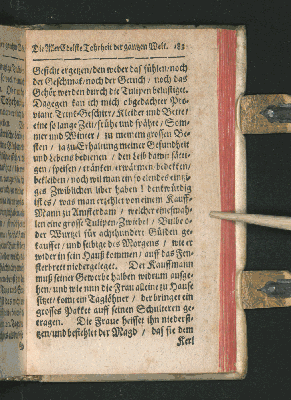 Die Aller Edelste Tohrheit der gantzen Welt. 183
Gesicht ergetzen / den weder das fühlen / noch
der Geschmak / noch der Geruch / noch das
Gehör werden durch die Tulipen belustiget.
Dagegen kan ich mich abgedachter
eine so lange Zeit / frühe und spähte /
mer und Winter / zu meinem grossen Be-
sten / ja zu Erhaltung meiner Gesundheit
und Lebens bedienen / den Leib damit
gen / speisen / tränken / erwärmen bedekken /
bekleiden / noch wil man ein so elendes eintzi-
ges Zwiblichen über haben! denkwürdig
ist es / was man erzehlet von einem Kauff-
Mann zu Amsterdam / welcher einsmah-
len eine grosse Tulipen-Zwiebel / Bulbe o-
der Wurtzel für achthundert Gülden ge-
kauffet / und selbige des Morgens / wie er
wieder in sein Hauß kommen / auf das Fen-
sterbrett niedergeleget. Der Kauffmann
muß seiner Gewerbe halben widrum ausge-
hen / und wie nun die Frau alleine zu Hause
sitzet / komt ein Taglöhner / der bringet ein
grosses Pakket auff seinen Schulteren ge-
tragen. Die Fraue heisset ihn niedersi-
tzen / und befiehlet der Magd / daß sie dem
Kerl